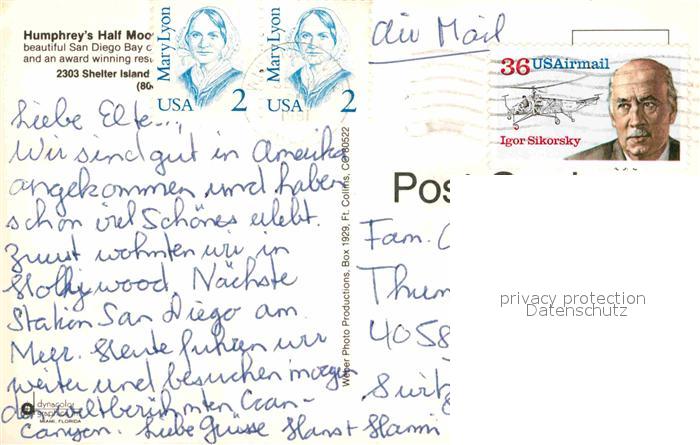 Humphrey's Half Moo
beautiful San Diego Bay
and an award winning
2303 Shelter Island
(80
Mary Lyon
USA 2
Mary Lyon
USA 2
air Mail
36 USAirmail
Igor Sikorsky
Liebe Elte...
Wir sind gut in Amerika
angekommen und haben
schon viel Schönes erlebt.
Zuerst wohnten wir in
Hollywood. Nächste
Station San Diego am
Meer. Heute fuhren wir
weiter und besuchen morgen
den weltberühmten Gran-
Canyon. Liebe Grüsse Hans + Hanni
dynacolor
MIAMI, FLORIDA
Weber Photo Productions, Box 1929, Ft. Collins, CO 80522
Post
Fam.
Thur
4058
privacy protection
Datenschutz